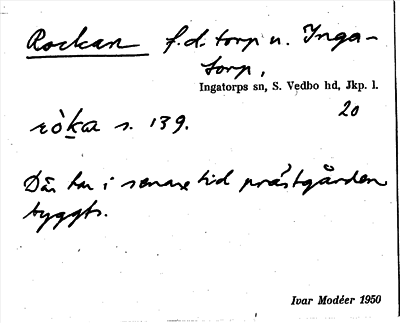 Rockan f.d. torp u. Inga-
torp,
Ingatorps sn, S. Vedbo hd, Jkp. l.
20
ròka s. 139.
Där har i senare tid prästgården
byggts.
Ivar Modéer 1950